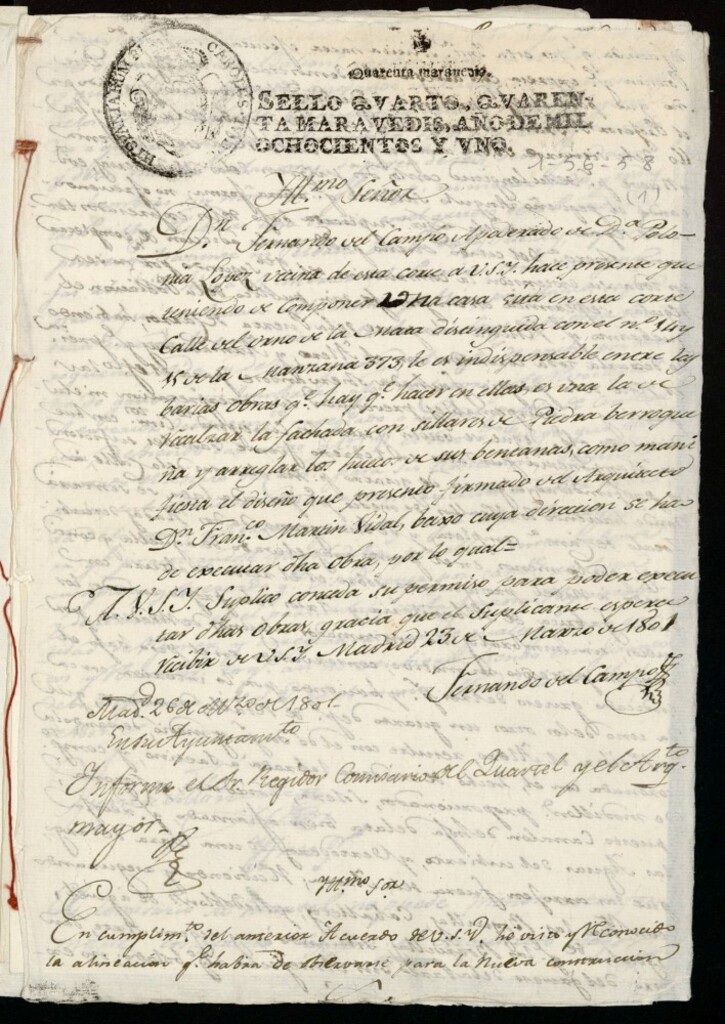 HISPANIARUM
CAROLUS
Quarenta maravedis.
SELLO QVARTO, QVAREN-
TA MARAVEDIS, AÑO DE MIL
OCHOCIENTOS Y VNO.
1-56-58
(1)
Yll.mo Señor
D.n Fernando del Campo Apoderado de D.a Polo-
nia Lopez vecina de esta corte a V.S.Y. hace presente que
teniendo de componer una casa sita en esta corte
Calle del orno de la Mata distinguida con el n.o 14 y
15 de la Manzana 373, le es indispensable entre las
barias obras q.e hay q.e hacer en ellas, es una la de
recalzar la fachada con sillares de Piedra berroque
ña y arreglar los huecos de sus bentanas, como mani
fiesta el diseño que presento firmado del Arquitecto
D.n Fran.co Martin Vidal, baxo cuya direccion se ha
de executar dha obra, por lo qual=
A. V.S.Y. Suplico conceda su permiso para poder execu
tar dhas obras, gracia que el Suplicante espera
recibir de V.S.Y. Madrid 23 de Marzo de 1801
Fernando del Campo
Mad.d 26 de de 1801.
En su Ayuntam.to
Informe el Sr. Regidor Comisario del Quartel y el Arq.to
mayor-
Yll.mo Sor
En cumplim.to del anterior Acuerdo de V.S.Y. he visto y Reconocido
la alineacion q.e habra de observarse para la Nueva construccion